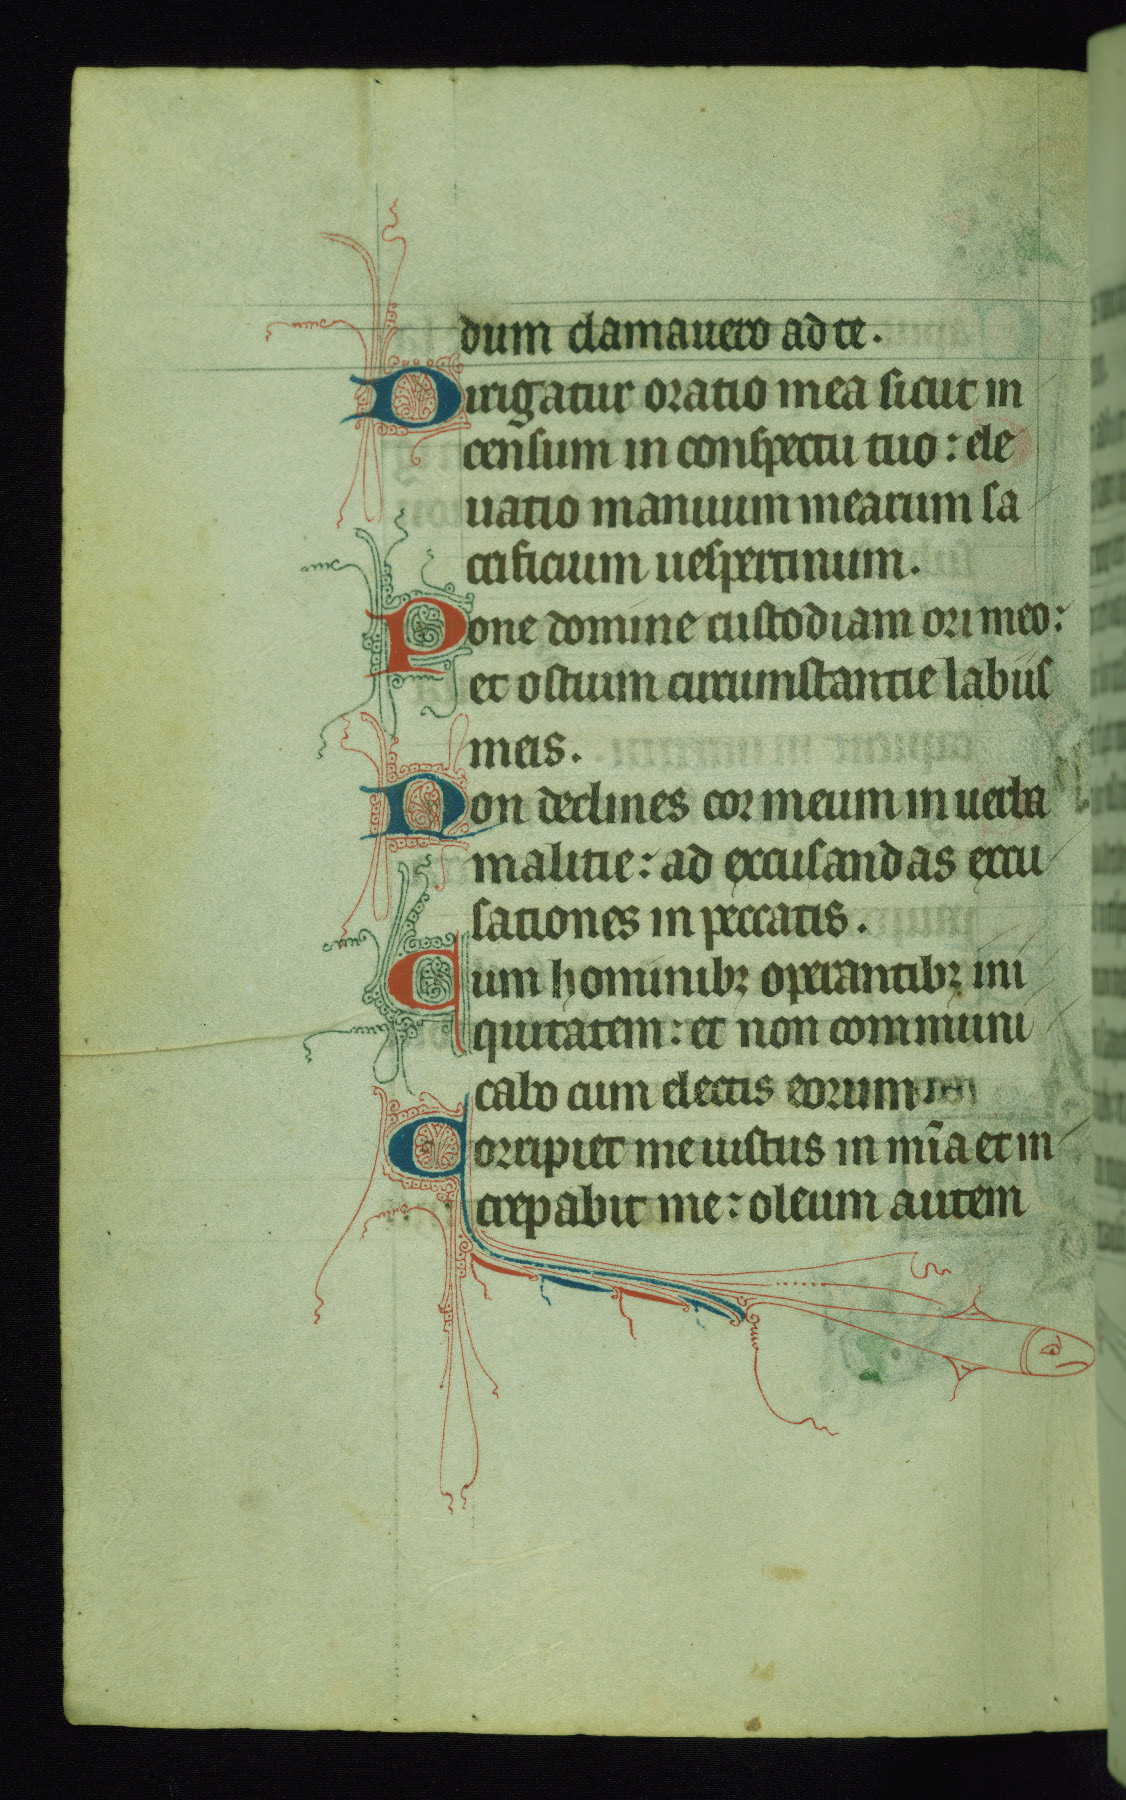 dum clamauero ad te.
Dirigatur oratio mea sicut in
censum in conspectu tuo: ele
uatio manuum mearum sa
crificium uespertinum.
Pone domine custodiam ori meo:
et ostium circumstantie labiis
meis.
Non declines cor meum in uerba
malitie: ad excusandas excu
sationes in peccatis.
Cum hominibꝫ operantibꝫ ini
quitatem: et non communi
cabo cum electis eorum
Corripiet me iustus in mīa et in
crepabit me: oleum autem